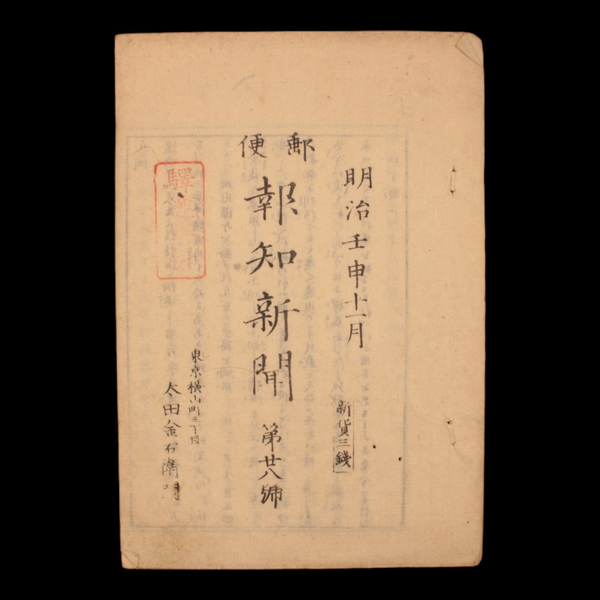 明治壬申十一月
新貨三錢
郵便
報知新聞
第廿八號
東京横山町三丁目
太田金右衛門
驛